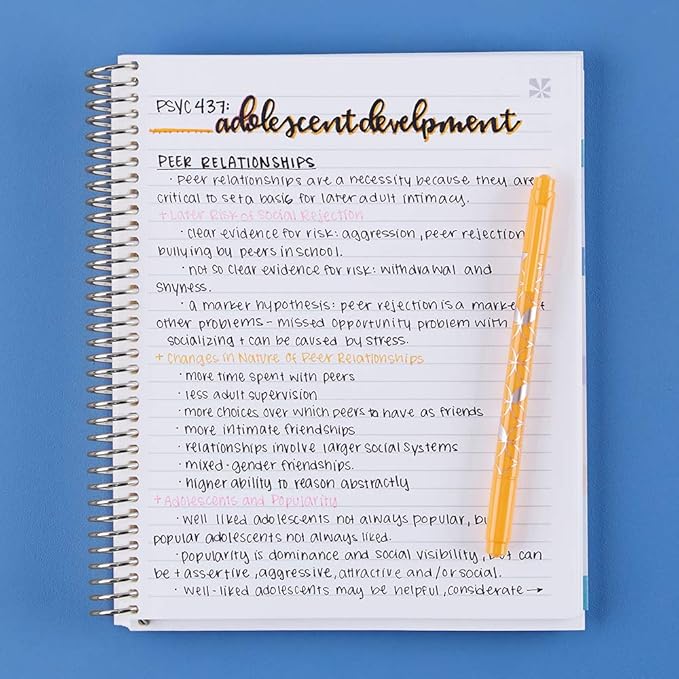 PSYC 437:
adolescent develpment
PEER RELATIONSHIPS
· Peer relationships are a necessity because they are
critical to set a basis for later adult intimacy.
+ Later Risk of Social Rejection
· clear evidence for risk: aggression, peer rejection
bullying by peers in school.
· not so clear evidence for risk: withdrawal and
shyness.
· a marker hypothesis: peer rejection is a marker of
other problems - missed opportunity problem with
socializing + can be caused by stress.
+ Changes in Nature of Peer Relationships
· more time spent with peers
· less adult supervision
· more choices over which peers to have as friends
· more intimate friendships
· relationships involve larger social systems
· mixed-gender friendships.
· higher ability to reason abstractly
+ Adolescents and Popularity
· Well liked adolescents not always popular, but
popular adolescents not always liked.
· popularity is dominance and social visibility, but can
be + assertive, aggressive, attractive and/or social.
· well-liked adolescents may be helpful, considerate →